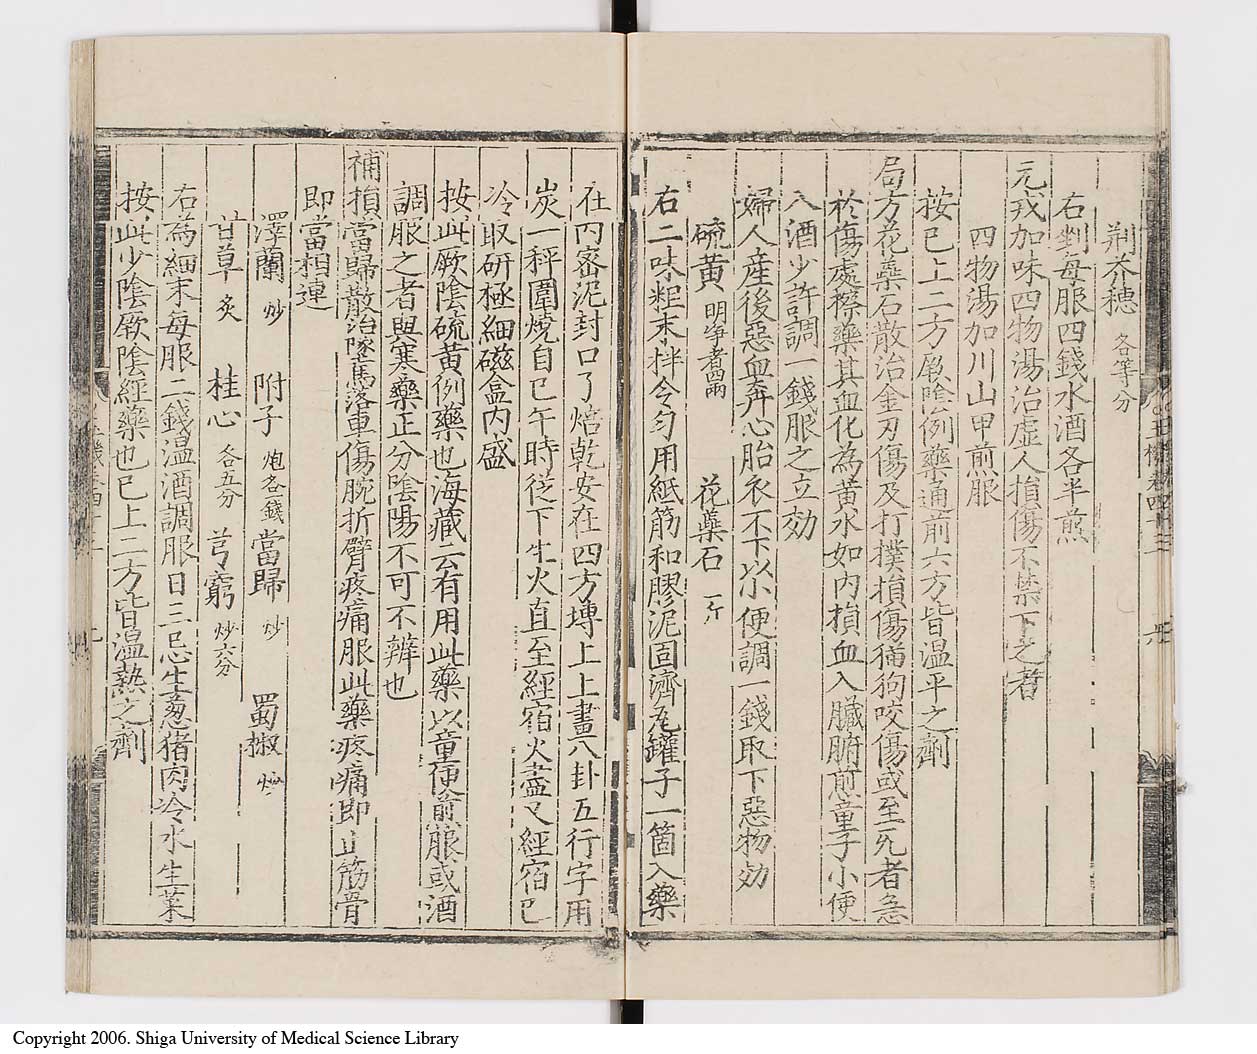 荆芥穗 各等分
右剉每服四錢水酒各半煎
元戎加味四物湯治虛人損傷不禁下之者
四物湯加川山甲煎服
按已上二方厥陰例藥通前六方皆温平之劑
局方花藥石散治金刃傷及打撲損傷猫狗咬傷或至死者急
於傷處摻藥其血化為黃水如内損血入臟腑煎童子小便
入酒少許調一錢服之立効
婦人産後惡血奔心胎衣不下以小便調一錢取下惡物効
硫黃 明净者四兩 花藥石 一斤
右二味粗末拌令匀用紙筋和膠泥固濟瓦罐子一箇入藥
在内密泥封口了焙乾安在四方塼上上畫八卦五行字用
炭一秤圍燒自巳午時從下生火直至經宿火盡又經宿已
冷取研極細磁盒内盛
按此厥陰硫黃例藥也海藏云有用此藥以童便煎服或酒
調服之者與寒藥正分陰陽不可不辨也
補損當歸散治墜馬落車傷腕折臂疼痛服此藥疼痛即止筋骨
即當相連
澤蘭 炒 附子 炮各二錢 當歸 炒 蜀椒 炒
甘草 炙 桂心 各五分 芎藭 炒六分
右為細末每服二錢温酒調服日三忌生葱猪肉冷水生菜
按此少陰厥陰經藥也已上二方皆温熱之劑
Copyright 2006. Shiga University of Medical Science Library